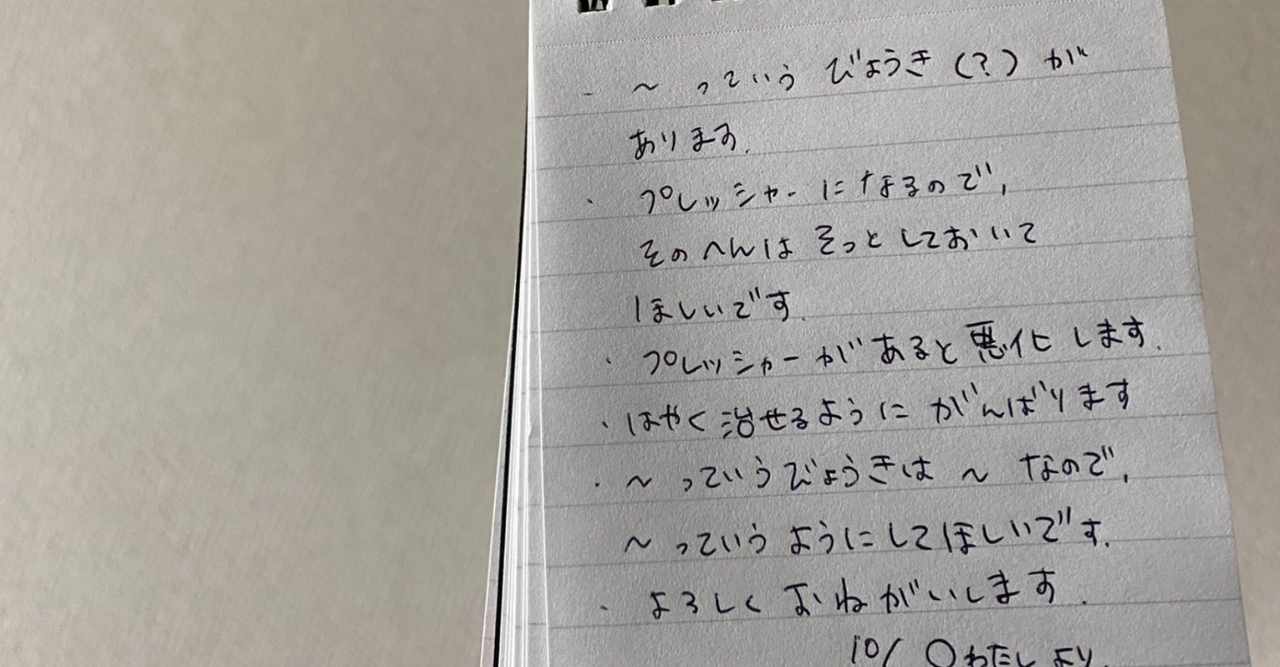 ・ ～っていうびょうき(?)が
あります.
・ プレッシャーになるので,
そのへんはそっとしておいて
ほしいです.
・ プレッシャーがあると悪化します.
・はやく治せるようにがんばります
・～っていうびょうきは～なので,
～っていうようにしてほしいです.
・ よろしくおねがいします.
10/〇わたしより